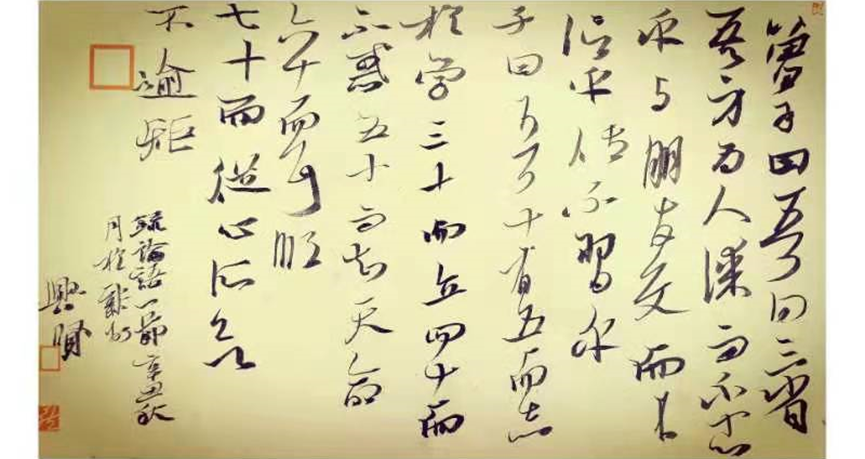 曾子曰吾日三省
吾身为人谋而不忠
乎与朋友交而不
信乎传不习乎
子曰吾十有五而志
於学三十而立四十而
不惑五十而知天命
六十而耳顺
七十而從心所欲
不逾矩
録論語一節辛丑秋
月於
興賢